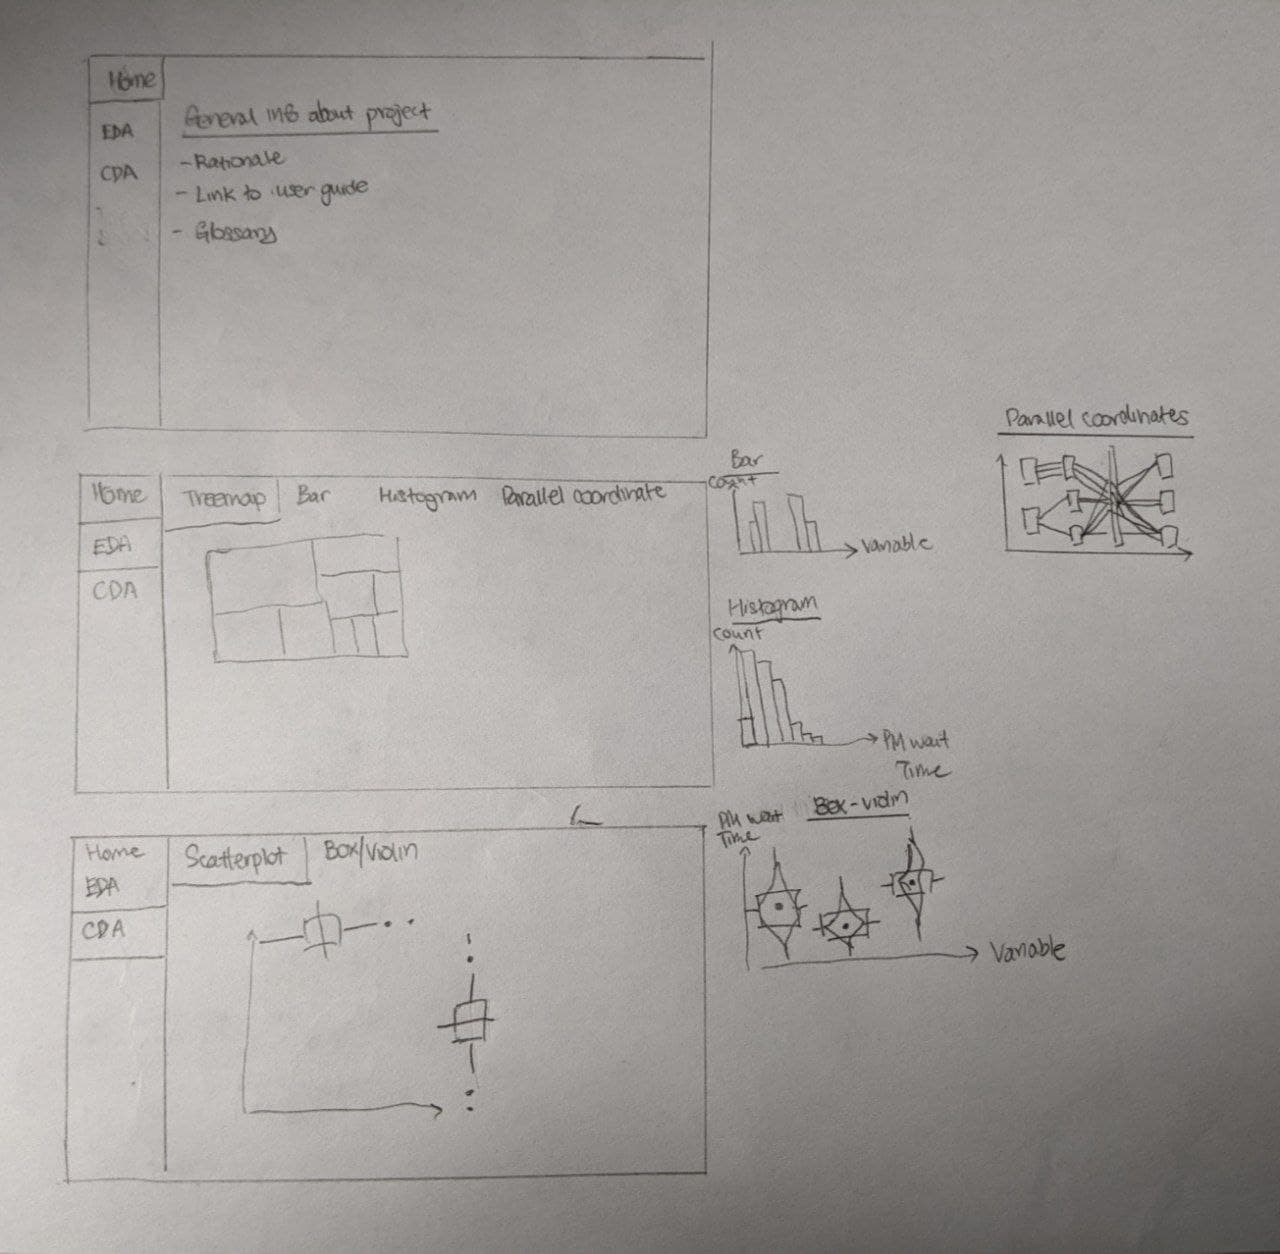 Home
EDA
CDA
General info about project
- Rationale
- Link to user guide
- Glossary
Parallel coordinates
Home
EDA
CDA
Treemap Bar Histogram Parallel coordinate
Bar
Count
Variable
Histogram
Count
PM wait
Time
Home
EDA
CDA
Scatterplot Box/Violin
PM wait
Time
Box-violin
Variable